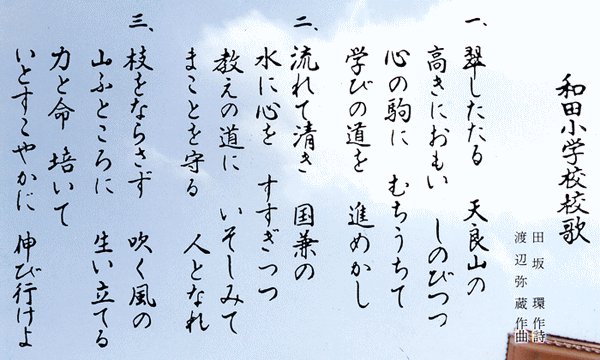 和田小学校校歌
田坂 環作詩
渡辺弥蔵作曲
一、翠したたる 天良山の
高きにおもい しのびつつ
心の駒に むちうちて
学びの道を 進めかし
二、流れて清き 国兼の
水に心を すすぎつつ
教えの道に いそしみて
まことを守る 人となれ
三、枝をならさず 吹く風の
山ふところに 生い立てる
力と命 培いて
いとすこやかに 伸び行けよ